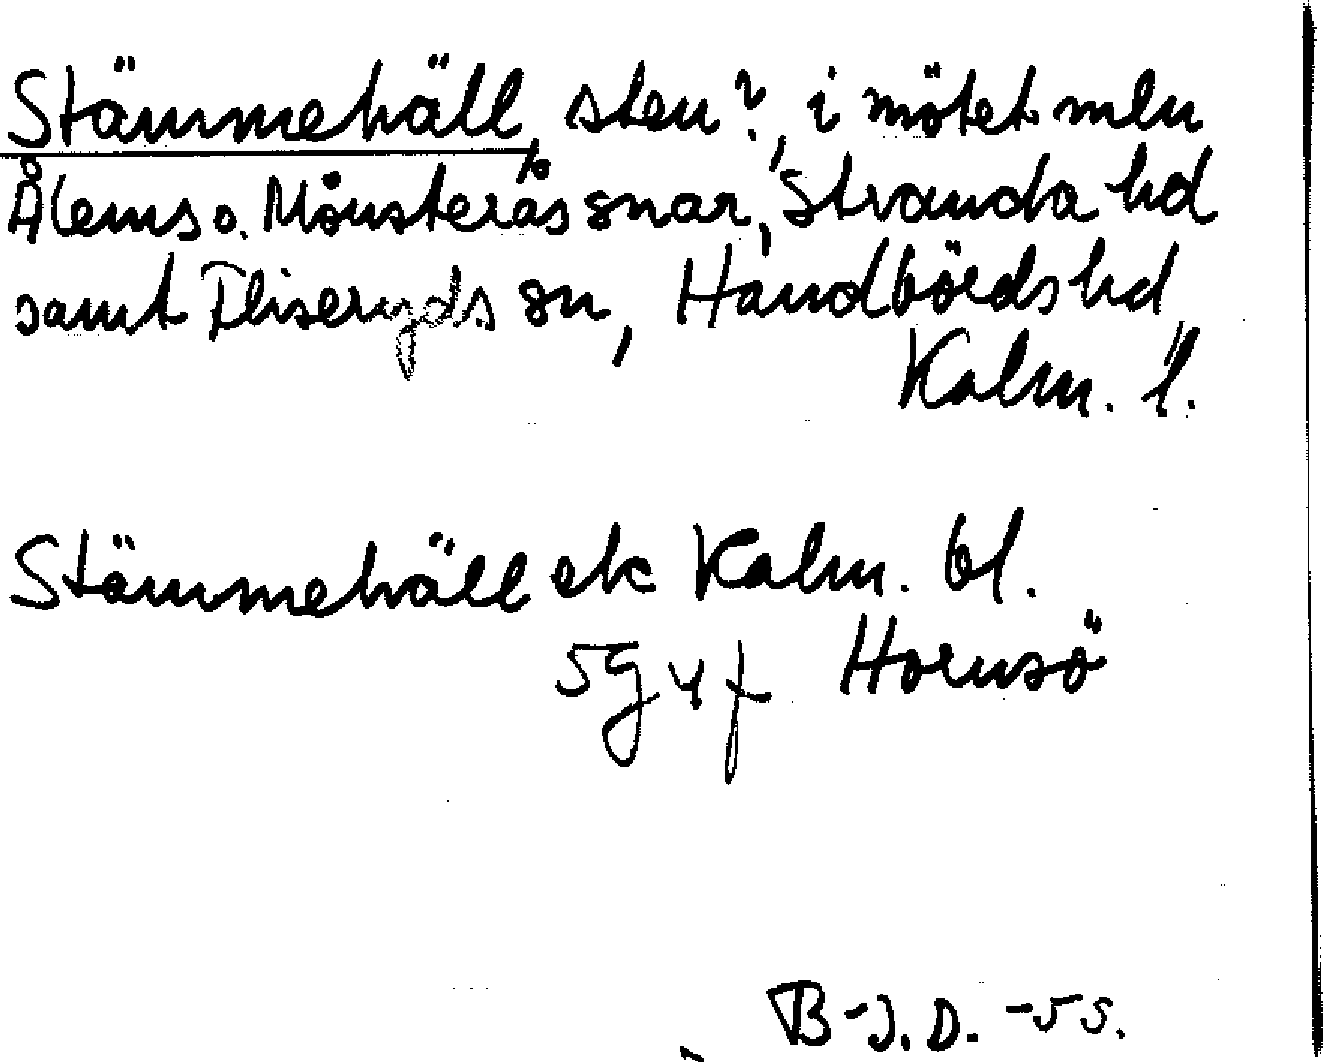 Stämmehäll, sten?, i mötet mln
Ålems o. Mönsterås snar, Stranda hd
samt Fliseryds sn, Handbörds hd,
Kalm. l.
Stämmehäll ek Kalm. bl.
5g4f Hornsö
B-J.D. -55.